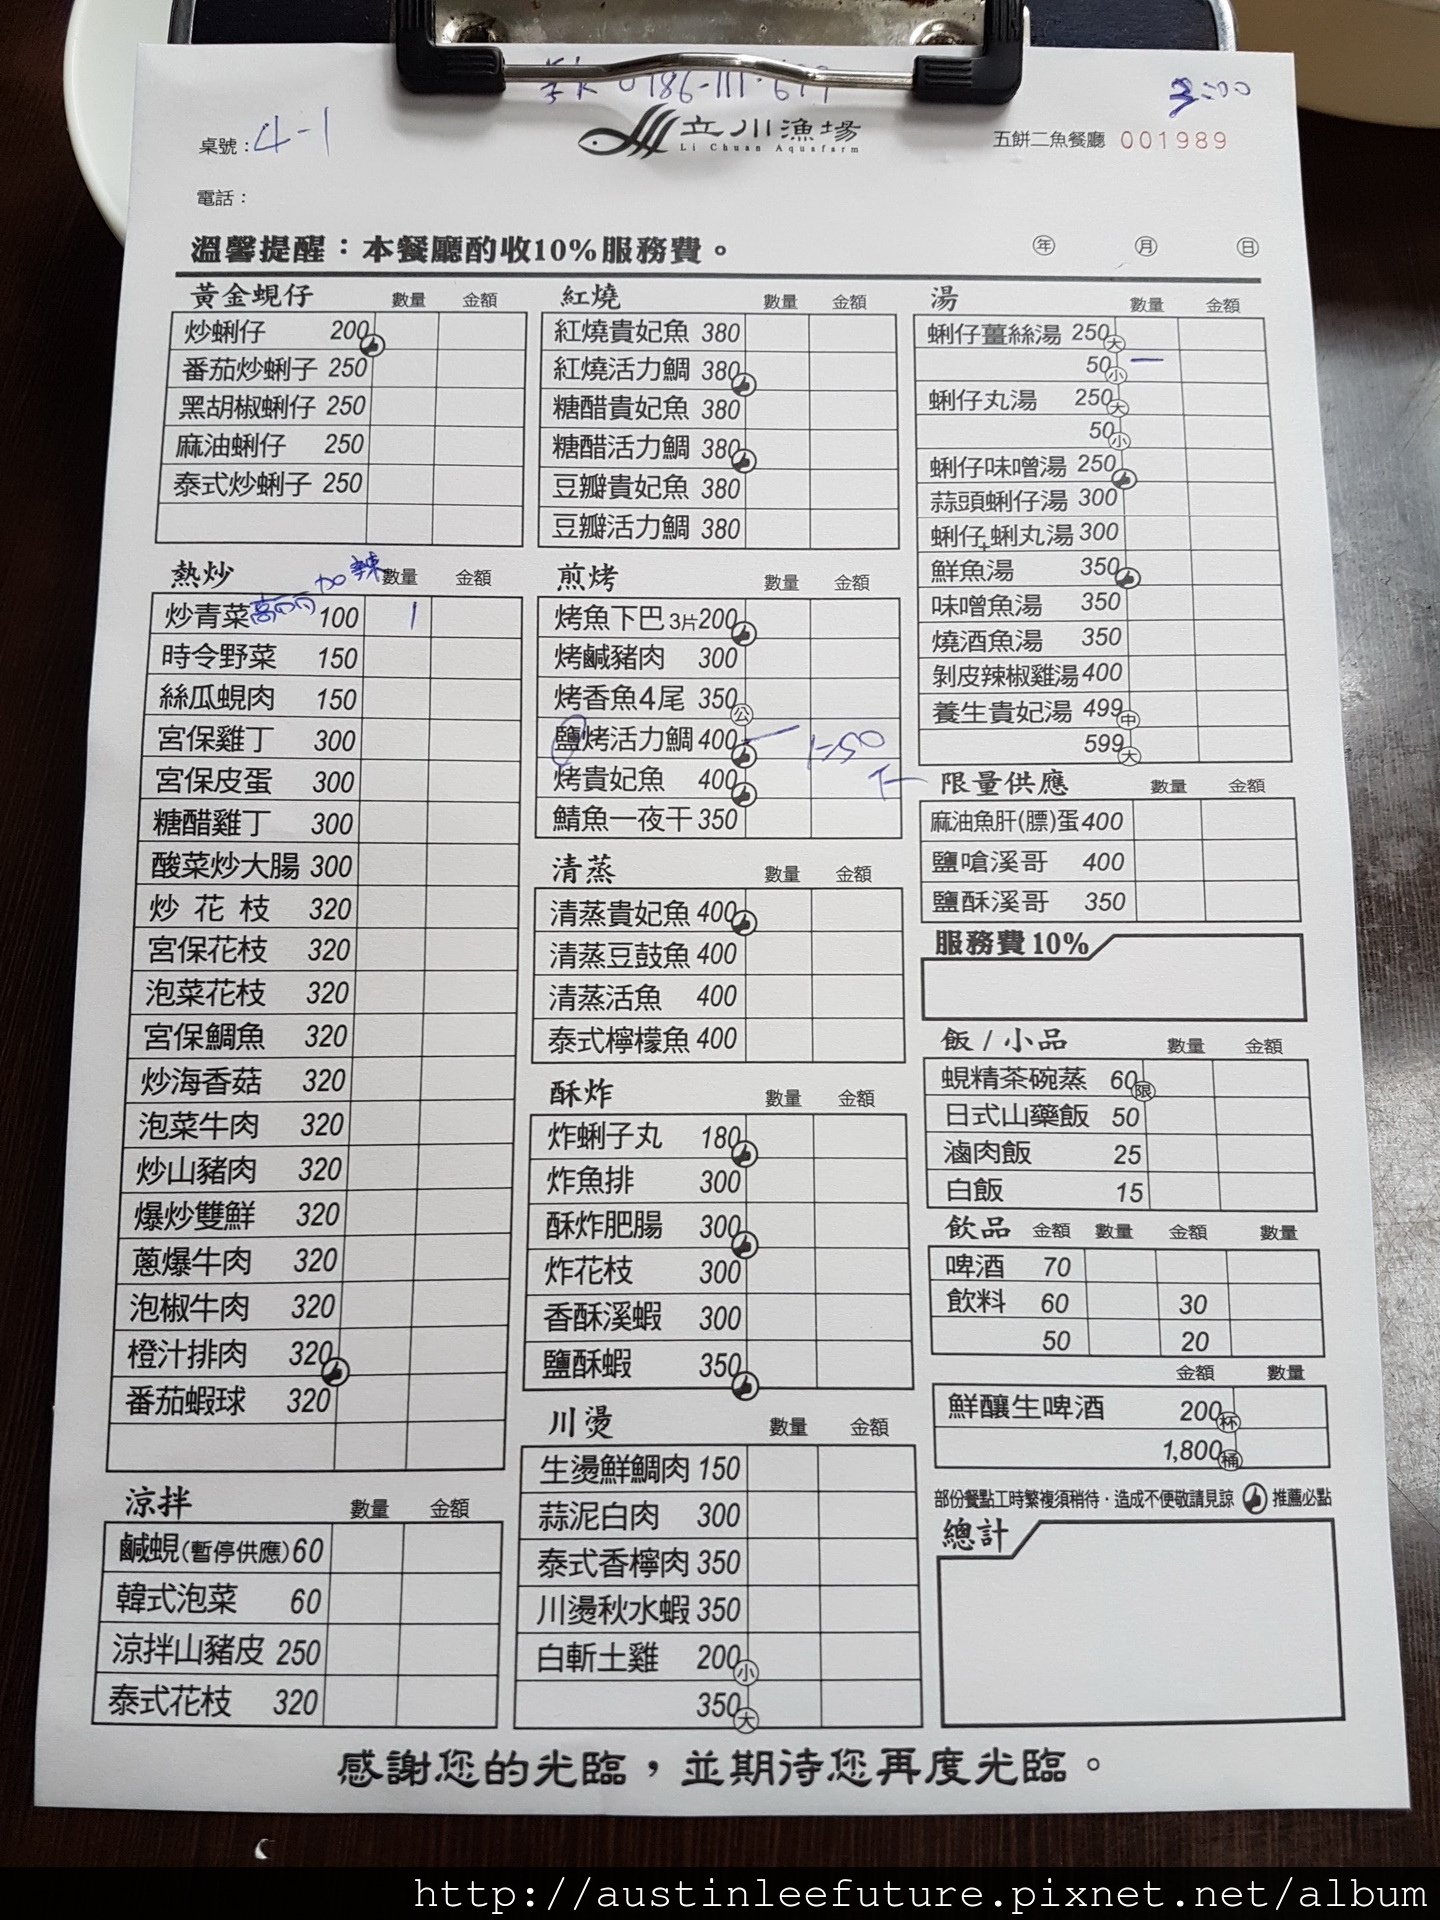 3:00
立川漁場
Li Chuan Aquafarm
五餅二魚餐廳 001989
桌號：4-1
電話：
溫馨提醒：本餐廳酌收10%服務費。
年 月 日
黃金蜆仔 數量 金額
炒蜊仔 200
番茄炒蜊子 250
黑胡椒蜊仔 250
麻油蜊仔 250
泰式炒蜊子 250
熱炒 加辣 數量 金額
炒青菜 100 1
時令野菜 150
絲瓜蜆肉 150
宮保雞丁 300
宮保皮蛋 300
糖醋雞丁 300
酸菜炒大腸 300
炒花枝 320
宮保花枝 320
泡菜花枝 320
宮保鯛魚 320
炒海香菇 320
泡菜牛肉 320
炒山豬肉 320
爆炒雙鮮 320
蔥爆牛肉 320
泡椒牛肉 320
橙汁排肉 320
番茄蝦球 320
涼拌 數量 金額
鹹蜆(暫停供應) 60
韓式泡菜 60
涼拌山豬皮 250
泰式花枝 320
紅燒 數量 金額
紅燒貴妃魚 380
紅燒活力鯛 380
糖醋貴妃魚 380
糖醋活力鯛 380
豆瓣貴妃魚 380
豆瓣活力鯛 380
煎烤 數量 金額
烤魚下巴 3片 200
烤鹹豬肉 300
烤香魚4尾 350 公
鹽烤活力鯛 400 一
烤貴妃魚 400
鯖魚一夜干 350
清蒸 數量 金額
清蒸貴妃魚 400
清蒸豆鼓魚 400
清蒸活魚 400
泰式檸檬魚 400
酥炸 數量 金額
炸蜊子丸 180
炸魚排 300
酥炸肥腸 300
炸花枝 300
香酥溪蝦 300
鹽酥蝦 350
川燙 數量 金額
生燙鮮鯛肉 150
蒜泥白肉 300
泰式香檸肉 350
川燙秋水蝦 350
白斬土雞 200 小
350 大
湯 數量 金額
蜊仔薑絲湯 250 大
50 小 一
蜊仔丸湯 250 大
50 小
蜊仔味噌湯 250
蒜頭蜊仔湯 300
蜊仔+蜊丸湯 300
鮮魚湯 350
味噌魚湯 350
燒酒魚湯 350
剝皮辣椒雞湯 400
養生貴妃湯 499 中
599 大
限量供應 數量 金額
麻油魚肝(膘)蛋 400
鹽嗆溪哥 400
鹽酥溪哥 350
服務費10%
飯/小品 數量 金額
蜆精茶碗蒸 60 限
日式山藥飯 50
滷肉飯 25
白飯 15
飲品 金額 數量 金額 數量
啤酒 70
飲料 60 30
50 20
金額 數量
鮮釀生啤酒 200 杯
1,800 桶
部份餐點工時繁複須稍待‧造成不便敬請見諒 推薦必點
總計
感謝您的光臨，並期待您再度光臨。
http://austinleefuture.pixnet.net/album